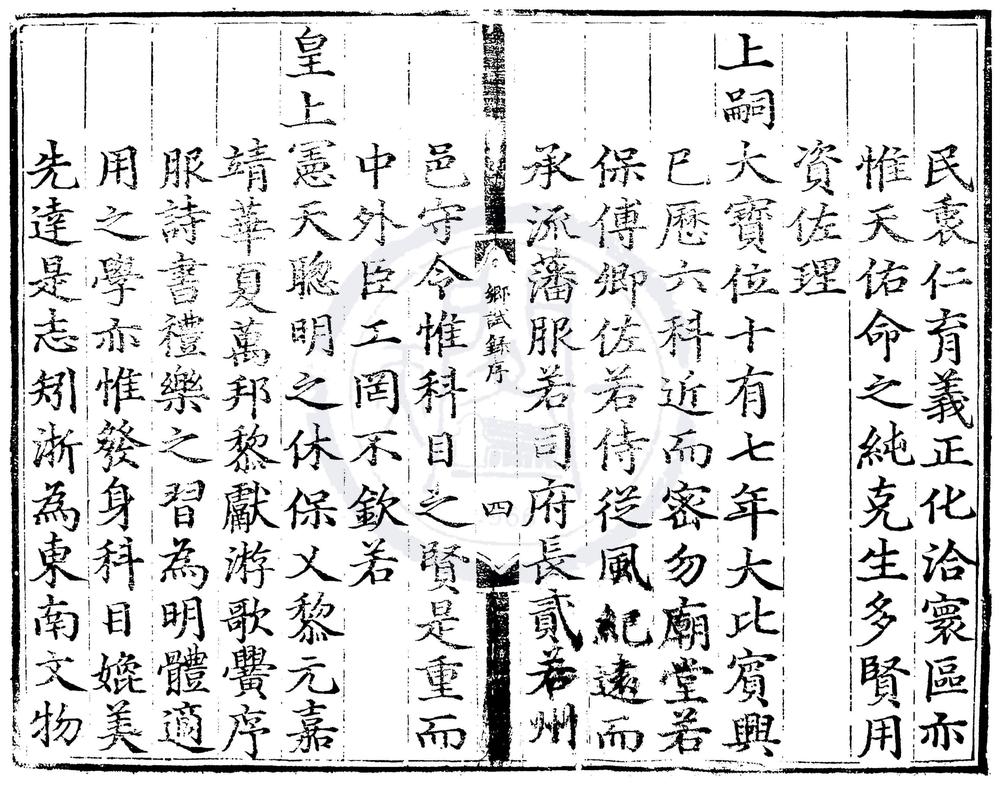 民衷仁育義正化洽寰區亦
惟天佑命之純克生多賢用
資佐理
上嗣大寶位十有七年大比賓興
已歷六科近而密勿廟堂若
保傅卿佐若侍從風紀遠而
承流藩服若司府長貳若州
鄉試錄序
四
邑守令惟科目之賢是重而
中外臣工罔不欽若
皇上憲天聰明之休保乂黎元嘉
靖華夏萬邦黎獻游歌黌序
服詩書禮樂之習為明體適
用之學亦惟發身科目媲美
先達是志矧浙為東南文物